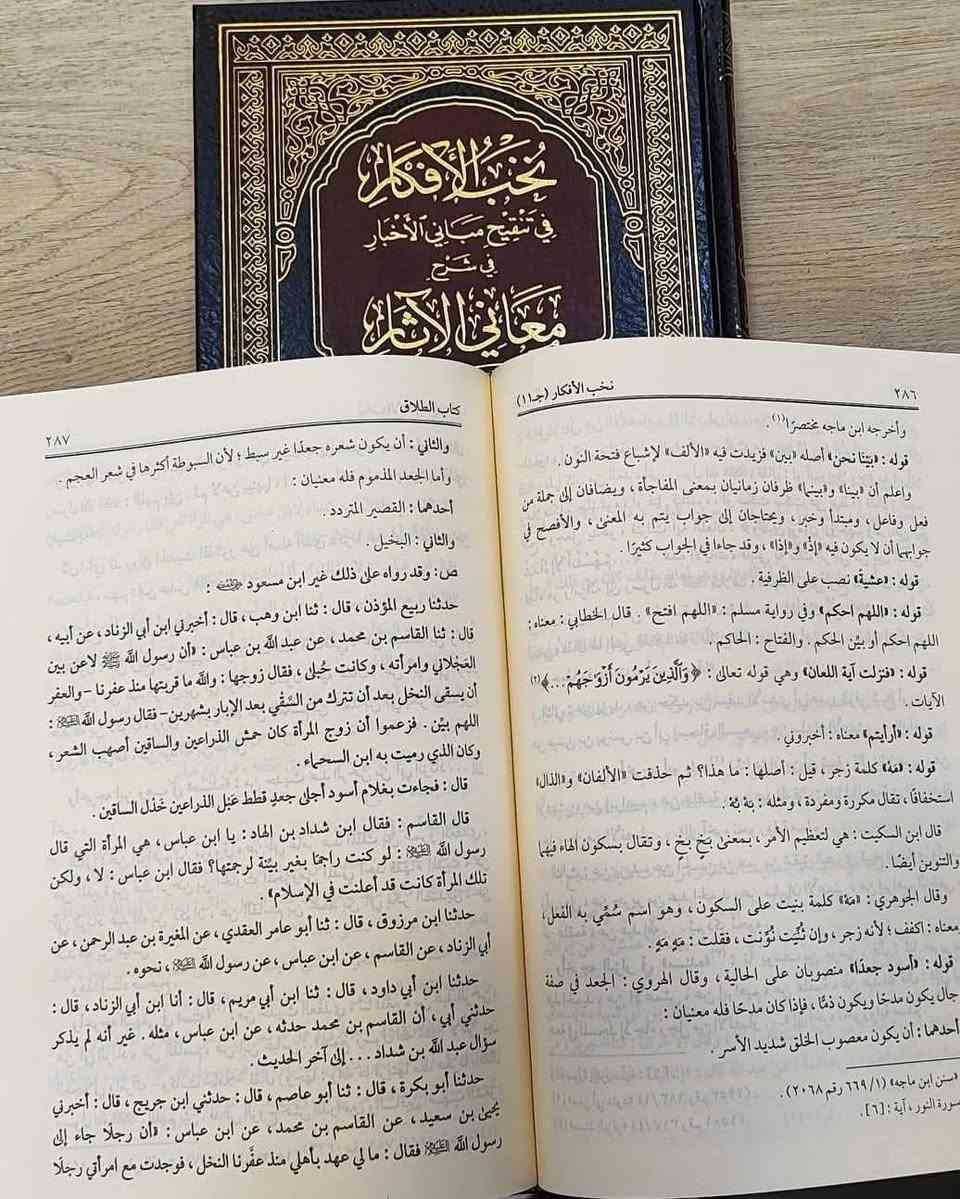 نُخَبُ الأَفْكَارِ
فِي تَنْقِيْحِ مَبَانِي الأَخْبَارِ
فِي شَرْحِ
مَعَانِي الآثَارِ
٢٨٦
نخب الأفكار (جـ١١)
وأخرجه ابن ماجه مختصرًا(١).
قوله: «بينا نحن» أصله «بين» فزيدت فيه «الألف» لإشباع فتحة النون.
واعلم أن «بينا» و«بينما» ظرفان زمانيان بمعنى المفاجأة، ويضافان إلى جملة من
فعل وفاعل، ومبتدأ وخبر، ويحتاجان إلى جواب يتم به المعنى، والأفصح في
جوابهما أن لا يكون فيه «إذْ» و«إذا»، وقد جاءا في الجواب كثيرًا.
قوله: «عشيةً» نصب على الظرفية.
قوله: «اللهم احكم» وفي رواية مسلم: «اللهم افتح». قال الخطابي: معناه:
اللهم احكم أو بيِّن الحكم. والفتاح: الحاكم.
قوله: «فنزلت آية اللعان» وهي قوله تعالى: ﴿وَٱلَّذِينَ يَرْمُونَ أَزْوَٰجَهُمْ...﴾(٢)
الآيات.
قوله: «أرأيتم» معناه: أخبروني.
قوله: «مَهْ» كلمة زجر، قيل: أصلها: ما هذا؟ ثم حذفت «الألفان» و«الذال»
استخفافًا، تقال مكررة ومفردة، ومثله: بَهْ بَهْ.
قال ابن السكيت: هي لتعظيم الأمر، بمعنى بَخٍ بَخٍ، وتقال بسكون الهاء فيهما
والتنوين أيضًا.
وقال الجوهري: «مَهْ» كلمة بنيت على السكون، وهو اسم سُمِّي به الفعل،
معناه: اكفف؛ لأنه زجر، وإن ثُنِّيت نُوِّنت، فقلت: مَهٍ مَهٍ.
قوله: «أسود جعدًا» منصوبان على الحالية، وقال الهروي: الجعد في صفة
جال يكون مدحًا ويكون ذمًّا، فإذا كان مدحًا فله معنيان:
أحدهما: أن يكون معصوب الخلق شديد الأسر.
«سنن ابن ماجه» (١/ ٦٦٩ رقم ٢٠٦٨).
سورة النور، آية: [٦].
كتاب الطلاق
٢٨٧
والثاني: أن يكون شعره جعدًا غير سبط؛ لأن السبوطة أكثرها في شعر العجم.
وأما الجعد المذموم فله معنيان:
أحدهما: القصير المتردد.
والثاني: البخيل.
ص: وقد رواه على ذلك غير ابن مسعود رضي الله عنه:
حدثنا ربيع المؤذن، قال: ثنا ابن وهب، قال: أخبرني ابن أبي الزناد، عن أبيه،
قال: ثنا القاسم بن محمد، عن عبد الله بن عباس: «أن رسول الله ﷺ لاعن بين
العجلاني وامرأته، وكانت حُبلى، فقال زوجها: والله ما قربتها منذ عفرنا -والعفر
أن يسقى النخل بعد أن تترك من السَّقْي بعد الإبار بشهرين- فقال رسول الله ﷺ:
اللهم بيِّن. فزعموا أن زوج المرأة كان حمش الذراعين والساقين أصهب الشعر،
وكان الذي رميت به ابن السحماء.
قال: فجاءت بغلام أسود أجلى جعدٍ قطط عَبْل الذراعين خَدْل الساقين.
قال القاسم: فقال ابن شداد بن الهاد: يا ابن عباس، هي المرأة التي قال
رسول الله ﷺ: لو كنت راجمًا بغير بيِّنة لرجمتها؟ فقال ابن عباس: لا، ولكن
تلك المرأة كانت قد أعلنت في الإسلام».
حدثنا ابن مرزوق، قال: ثنا أبو عامر العقدي، عن المغيرة بن عبد الرحمن، عن
أبي الزناد، عن القاسم، عن ابن عباس، عن رسول الله ﷺ، نحوه.
حدثنا ابن أبي داود، قال: ثنا ابن أبي مريم، قال: أنا ابن أبي الزناد، قال:
حدثني أبي، أن القاسم بن محمد حدثه، عن ابن عباس، مثله. غير أنه لم يذكر
سؤال عبد الله بن شداد... إلى آخر الحديث.
حدثنا أبو بكرة، قال: ثنا أبو عاصم، قال: حدثني ابن جريج، قال: أخبرني
يحيى بن سعيد، عن القاسم بن محمد، عن ابن عباس: «أن رجلًا جاء إلى
رسول الله ﷺ فقال: ما لي عهد بأهلي منذ عفَّرنا النخل، فوجدت مع امرأتي رجلًا